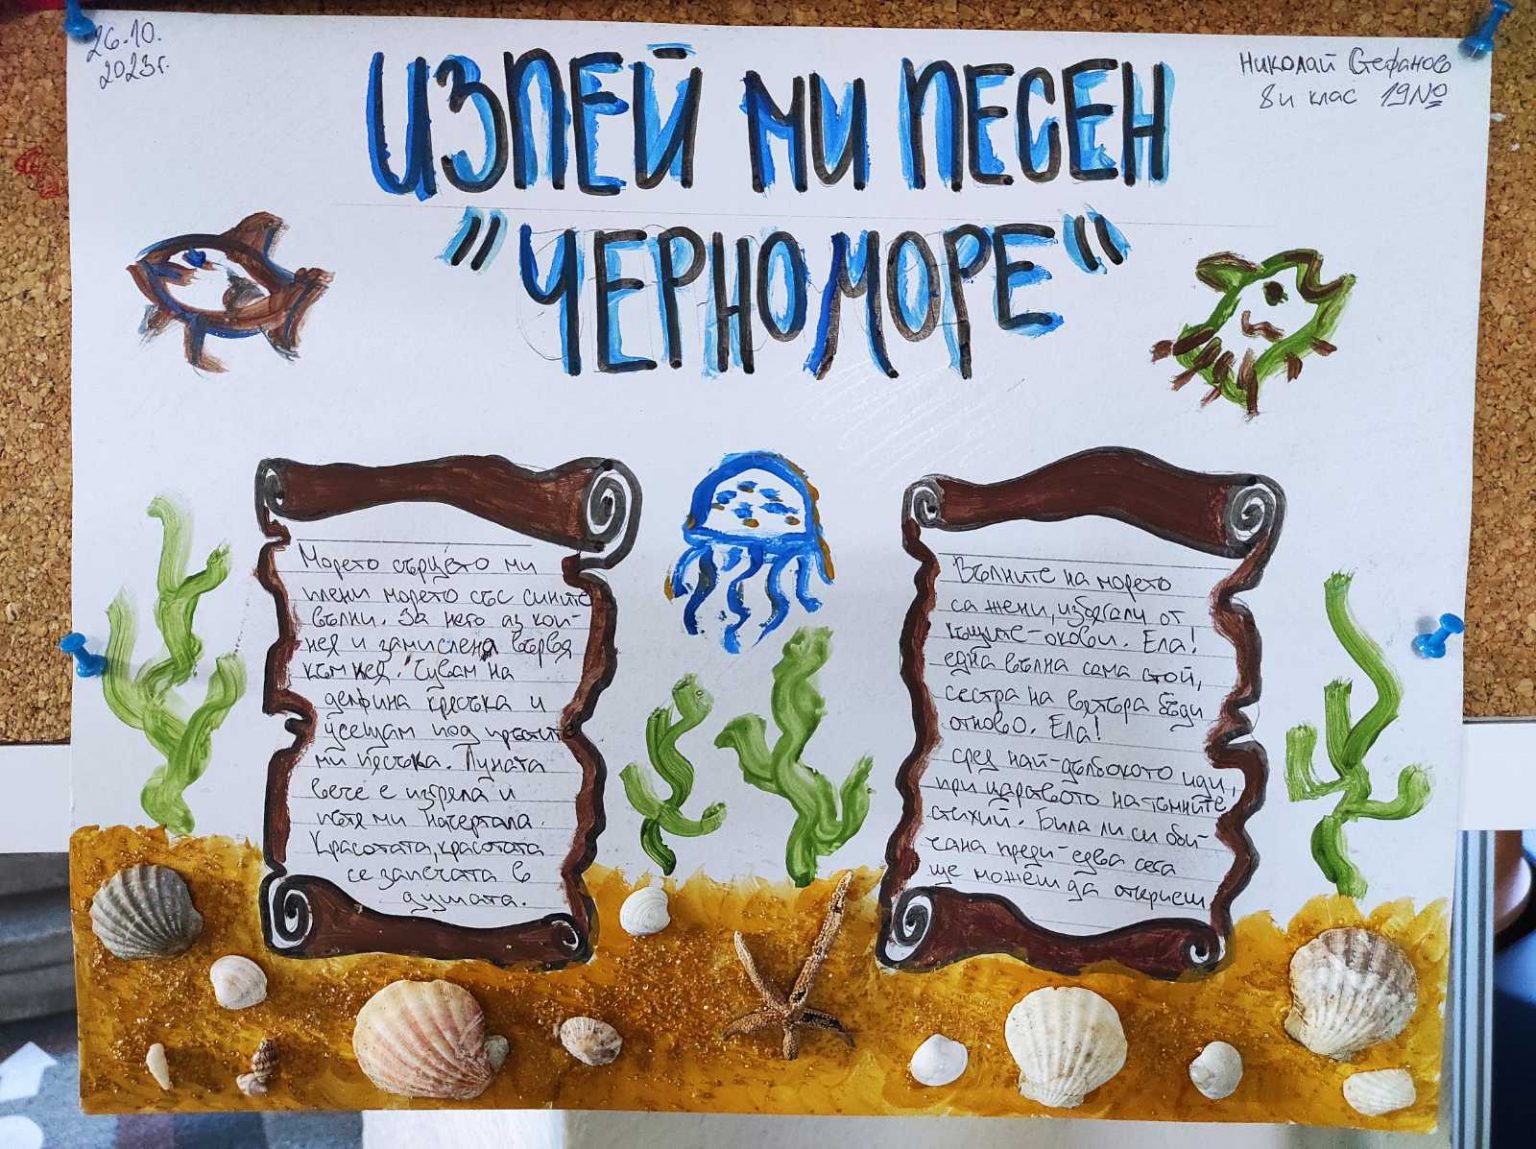 26.10.
2023г.
Николай Стефанов
8и клас 19№
ИЗПЕЙ МИ ПЕСЕН
"ЧЕРНОМОРЕ"
Морето сърцето ми
плени морето със сините
вълни. За него аз коп-
нея и замислена вървя
към нея. Чувам на
делфина крясъка и
усещам под пръстите
ми пясъка. Луната
вече е изгряла и
пътя ми начертала.
Красотата, красотата
се запечата в
душата.
Вълните на морето
са жени, избягали от
къщите-окови. Ела!
една вълна сама стой,
сестра на вятъра бъди
отново. Ела!
сред най-дълбокото иди,
при царството на тъмните
стихий. Била ли си оби-
чана преди-едва сега
ще можеш да откриеш